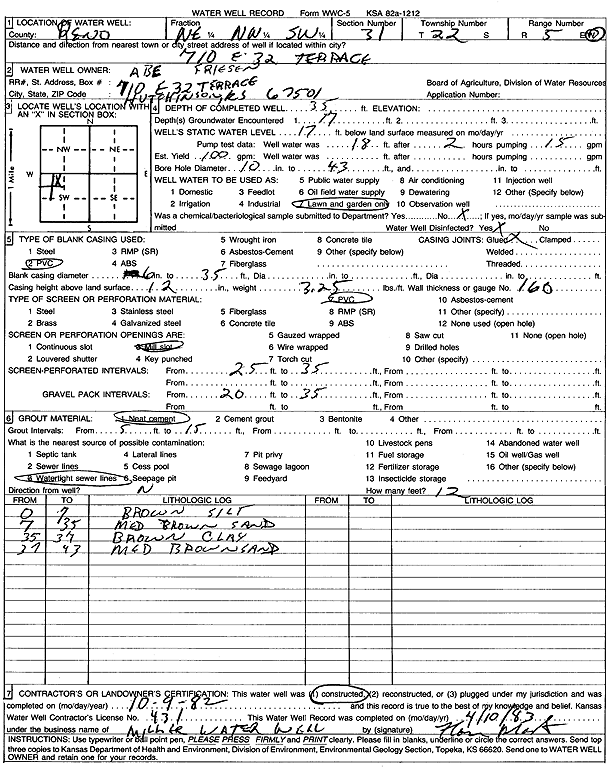 WATER WELL RECORD Form WWC-5 KSA 82a-1212
1 LOCATION OF WATER WELL: Fraction Section Number Township Number Range Number
County: RENO NE 1/4 NW 1/4 SW 1/4 31 T 22 S R 5 E/W
Distance and direction from nearest town or city street address of well if located within city?
710 E 32 TERRACE
2 WATER WELL OWNER: ABE FRIESEN
RR#, St. Address, Box # : 710 E 32 TERRACE Board of Agriculture, Division of Water Resources
City, State, ZIP Code : HUTCHINSON, KS 67501 Application Number:
3 LOCATE WELL'S LOCATION WITH AN "X" IN SECTION BOX:
N
NW NE
W E
X
SW SE
S
1 Mile
4 DEPTH OF COMPLETED WELL 35 ft. ELEVATION:
Depth(s) Groundwater Encountered 1. 17 ft. 2. ft. 3. ft.
WELL'S STATIC WATER LEVEL 17 ft. below land surface measured on mo/day/yr
Pump test data: Well water was 18 ft. after 2 hours pumping 15 gpm
Est. Yield 100 gpm: Well water was ft. after hours pumping gpm
Bore Hole Diameter 10 in. to 43 ft., and in. to ft.
WELL WATER TO BE USED AS: 5 Public water supply 8 Air conditioning 11 Injection well
1 Domestic 3 Feedlot 6 Oil field water supply 9 Dewatering 12 Other (Specify below)
2 Irrigation 4 Industrial 7 Lawn and garden only 10 Observation well
Was a chemical/bacteriological sample submitted to Department? Yes No X ; If yes, mo/day/yr sample was submitted
Water Well Disinfected? Yes X No
5 TYPE OF BLANK CASING USED: 5 Wrought iron 8 Concrete tile CASING JOINTS: Glued X Clamped
1 Steel 3 RMP (SR) 6 Asbestos-Cement 9 Other (specify below) Welded
2 PVC 4 ABS 7 Fiberglass Threaded
Blank casing diameter 6 in. to 35 ft., Dia in. to ft., Dia in. to ft.
Casing height above land surface 12 in., weight 3.25 lbs./ft. Wall thickness or gauge No. 160
TYPE OF SCREEN OR PERFORATION MATERIAL: 7 PVC 10 Asbestos-cement
1 Steel 3 Stainless steel 5 Fiberglass 8 RMP (SR) 11 Other (specify)
2 Brass 4 Galvanized steel 6 Concrete tile 9 ABS 12 None used (open hole)
SCREEN OR PERFORATION OPENINGS ARE: 5 Gauzed wrapped 8 Saw cut 11 None (open hole)
1 Continuous slot 3 Mill slot 6 Wire wrapped 9 Drilled holes
2 Louvered shutter 4 Key punched 7 Torch cut 10 Other (specify)
SCREEN-PERFORATED INTERVALS: From 25 ft. to 35 ft., From ft. to ft.
From ft. to ft., From ft. to ft.
GRAVEL PACK INTERVALS: From 20 ft. to 35 ft., From ft. to ft.
From ft. to ft., From ft. to ft.
6 GROUT MATERIAL: 1 Neat cement 2 Cement grout 3 Bentonite 4 Other
Grout Intervals: From 5 ft. to 15 ft., From ft. to ft., From ft. to ft.
What is the nearest source of possible contamination: 10 Livestock pens 14 Abandoned water well
1 Septic tank 4 Lateral lines 7 Pit privy 11 Fuel storage 15 Oil well/Gas well
2 Sewer lines 5 Cess pool 8 Sewage lagoon 12 Fertilizer storage 16 Other (specify below)
3 Watertight sewer lines 6 Seepage pit 9 Feedyard 13 Insecticide storage
Direction from well? N How many feet? 12
FROM TO LITHOLOGIC LOG FROM TO LITHOLOGIC LOG
0 7 BROWN SILT
7 35 MED BROWN SAND
35 37 BROWN CLAY
37 43 MED BROWN SAND
7 CONTRACTOR'S OR LANDOWNER'S CERTIFICATION: This water well was (1) constructed, (2) reconstructed, or (3) plugged under my jurisdiction and was
completed on (mo/day/year) 10-9-82 and this record is true to the best of my knowledge and belief. Kansas
Water Well Contractor's License No. 431 This Water Well Record was completed on (mo/day/yr) 4/10/83
under the business name of MILLER WATER WELL by (signature)
INSTRUCTIONS: Use typewriter or ball point pen, PLEASE PRESS FIRMLY and PRINT clearly. Please fill in blanks, underline or circle the correct answers. Send top
three copies to Kansas Department of Health and Environment, Division of Environment, Environmental Geology Section, Topeka, KS 66620. Send one to WATER WELL
OWNER and retain one for your records.